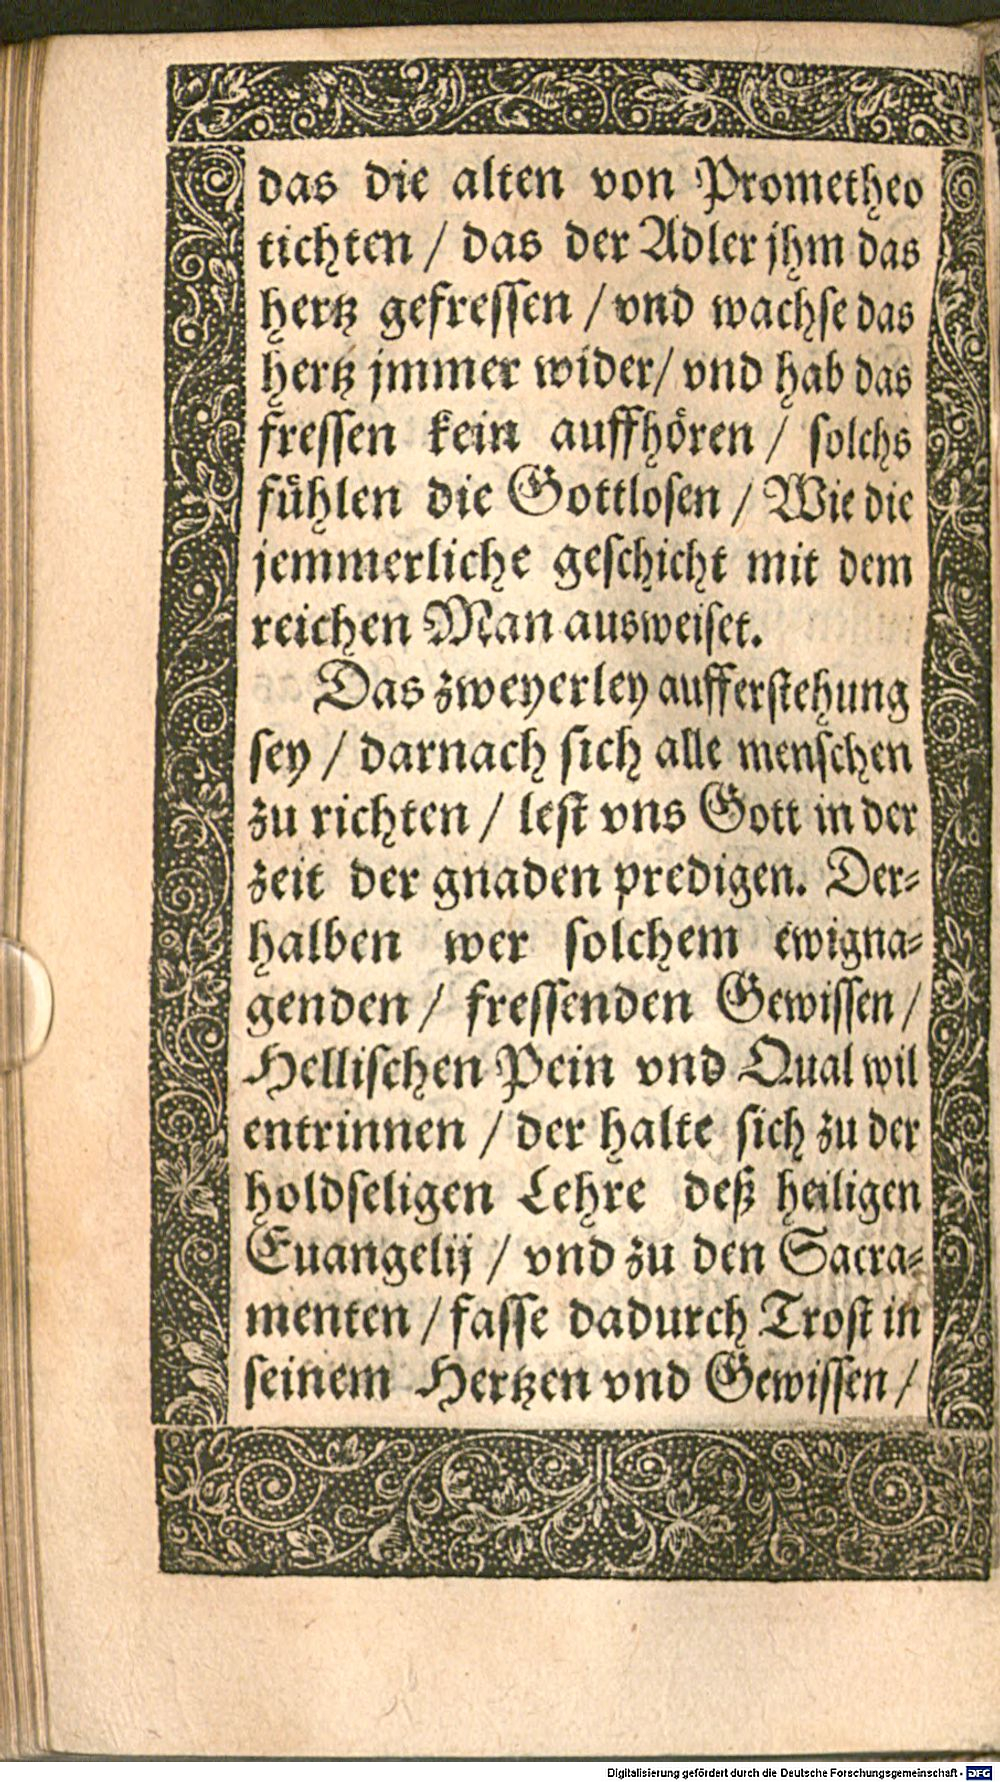 das die alten von Prometheo
tichten / das der Adler jhm das
hertz gefressen / vnd wachse das
hertz jmmer wider / vnd hab das
fressen kein auffhören / solchs
fühlen die Gottlosen / Wie die
jemmerliche geschicht mit dem
reichen Man ausweiset.
Das zweyerley aufferstehung
sey / darnach sich alle menschen
zu richten / lest vns Gott in der
zeit der gnaden predigen. Der-
halben wer solchem ewigna-
genden / fressenden Gewissen /
Hellischen Pein vnd Qual wil
entrinnen / der halte sich zu der
holdseligen Lehre deß heiligen
Euangelij / vnd zu den Sacra-
menten / fasse dadurch Trost in
seinem Hertzen vnd Gewissen /
Digitalisierung gefördert durch die Deutsche Forschungsgemeinschaft - DFG